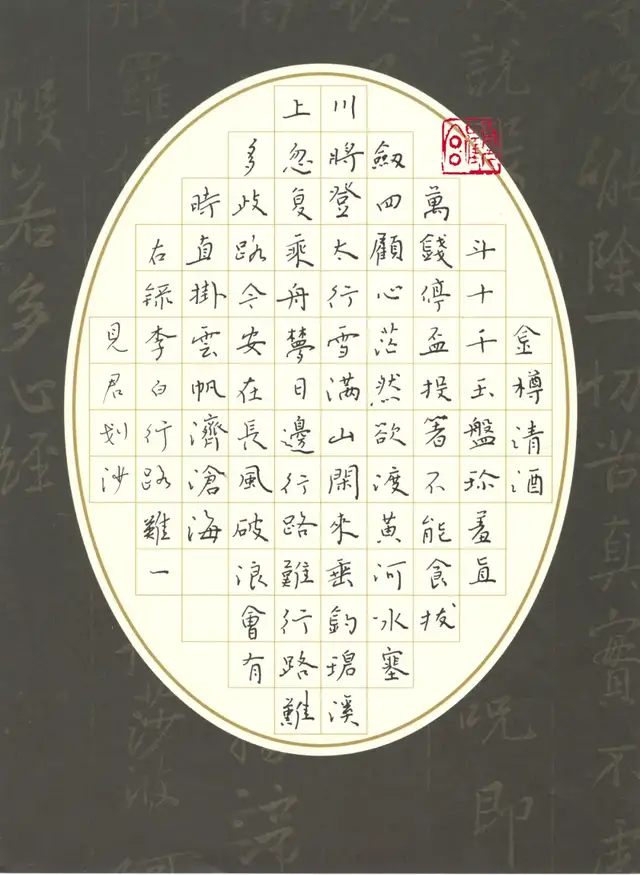 金樽清酒
斗十千玉盤珍羞直
萬錢停盃投箸不能食拔
劍四顧心茫然欲渡黃河冰塞
川將登太行雪满山閑來垂釣碧溪
上忽复乘舟夢日邊行路難行路難
多歧路今安在長風破浪會有
時直掛雲帆濟滄海
右録李白行路難一
見君划沙
能除一切苦真實不虛
說
咒即
羅
若多心經